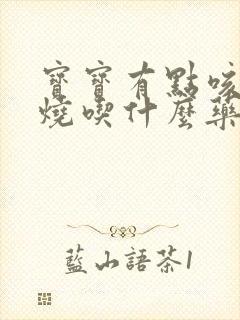 寶寶有點咳
燒喫什麼藥
藍山語茶1